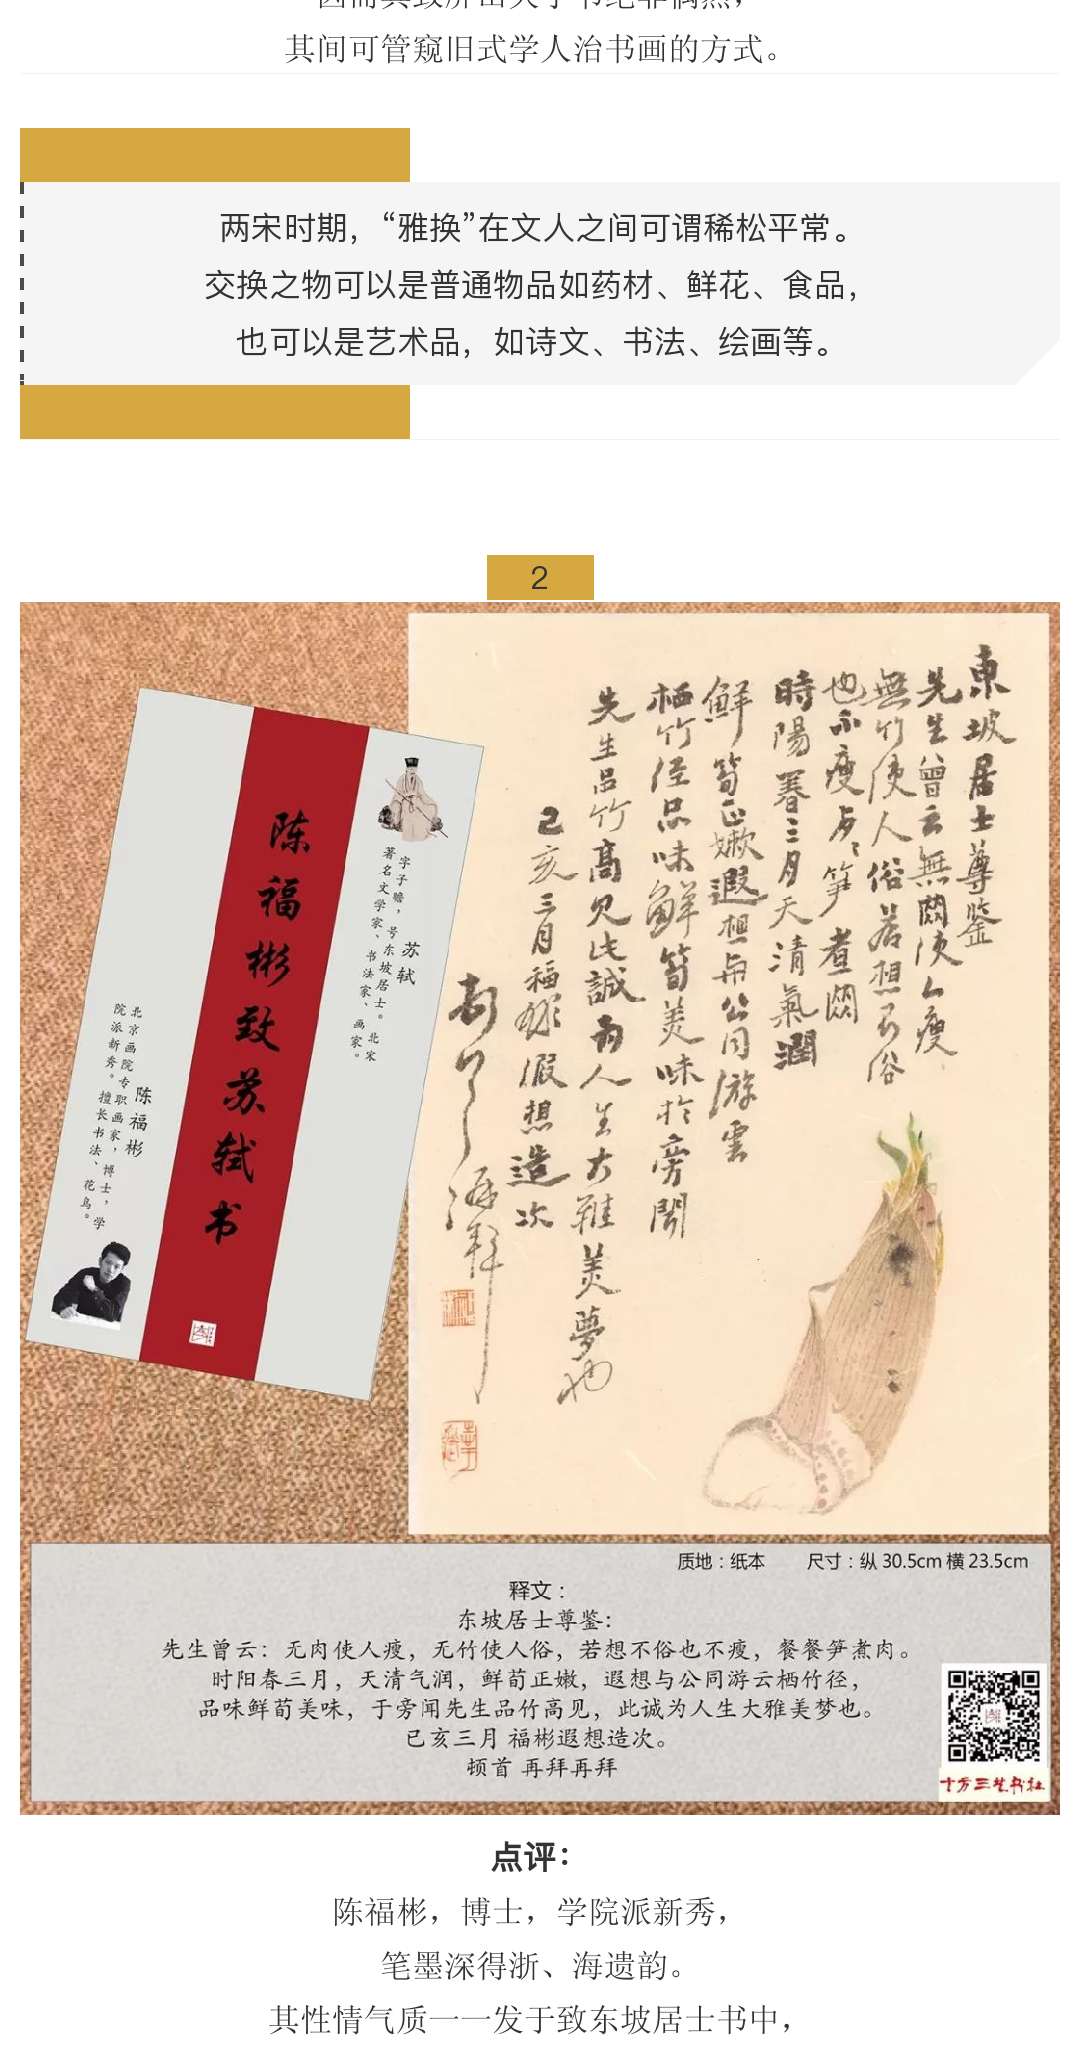 其间可管窥旧式学人治书画的方式。
两宋时期，“雅换”在文人之间可谓稀松平常。
交换之物可以是普通物品如药材、鲜花、食品，
也可以是艺术品，如诗文、书法、绘画等。
2
東坡居士尊鉴
先生曾云無閼使人瘦
無竹使人俗若想不俗
也不瘦歺々筍煮閼
時陽春三月天清氣潤
鮮筍正嫩遐想与公同游雲
栖竹径品味鮮筍美味於旁聞
先生品竹高见此誠为人生大雅美夢也
己亥三月福彬遐想造次
苏轼
字子瞻，号东坡居士。北宋
著名文学家、书法家、画家。
陈福彬致苏轼书
陈福彬
北京画院专职画家，博士，学
院派新秀。擅长书法、花鸟。
质地：纸本 尺寸：纵 30.5cm 横 23.5cm
释文：
东坡居士尊鉴：
先生曾云：无肉使人瘦，无竹使人俗，若想不俗也不瘦，餐餐笋煮肉。
时阳春三月，天清气润，鲜荀正嫩，遐想与公同游云栖竹径，
品味鲜荀美味，于旁闻先生品竹高见，此诚为人生大雅美梦也。
已亥三月 福彬遐想造次。
顿首 再拜再拜
十方三生书社
点评：
陈福彬，博士，学院派新秀，
笔墨深得浙、海遗韵。
其性情气质一一发于致东坡居士书中，